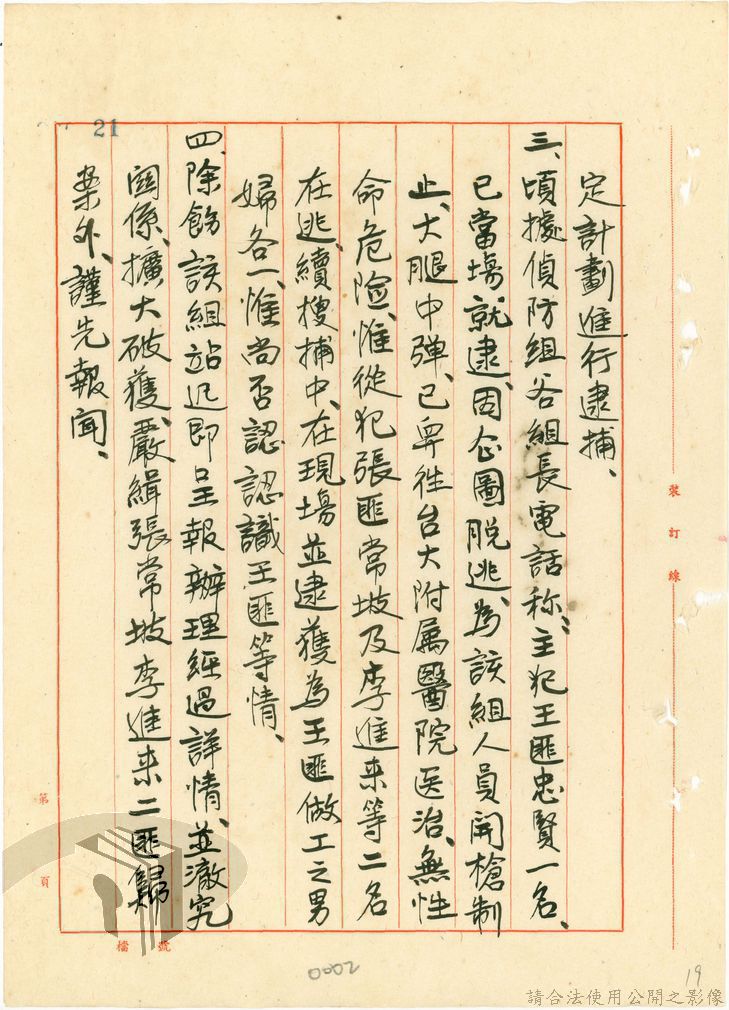 21
定計劃進行逮捕、
三、頃據偵防組谷組長電話称：主犯王匪忠賢一名、
已當場就逮、因企圖脱逃、為該組人員開槍制
止、大腿中弹、已舁往台大附属醫院医治、無性
命危險、惟從犯張匪常坡及李進来等二名
在逃、續搜捕中、在現場並逮獲為王匪做工之男
婦各一、惟尚否認認識王匪等情、
四、除飭該組站迅即呈報辦理經過詳情、並澈究
関係、擴大破獲、嚴緝張常坡李進来二匪歸
案外、謹先報聞、
裝訂線
第
頁
檔
號
0002
19
請合法使用公開之影像